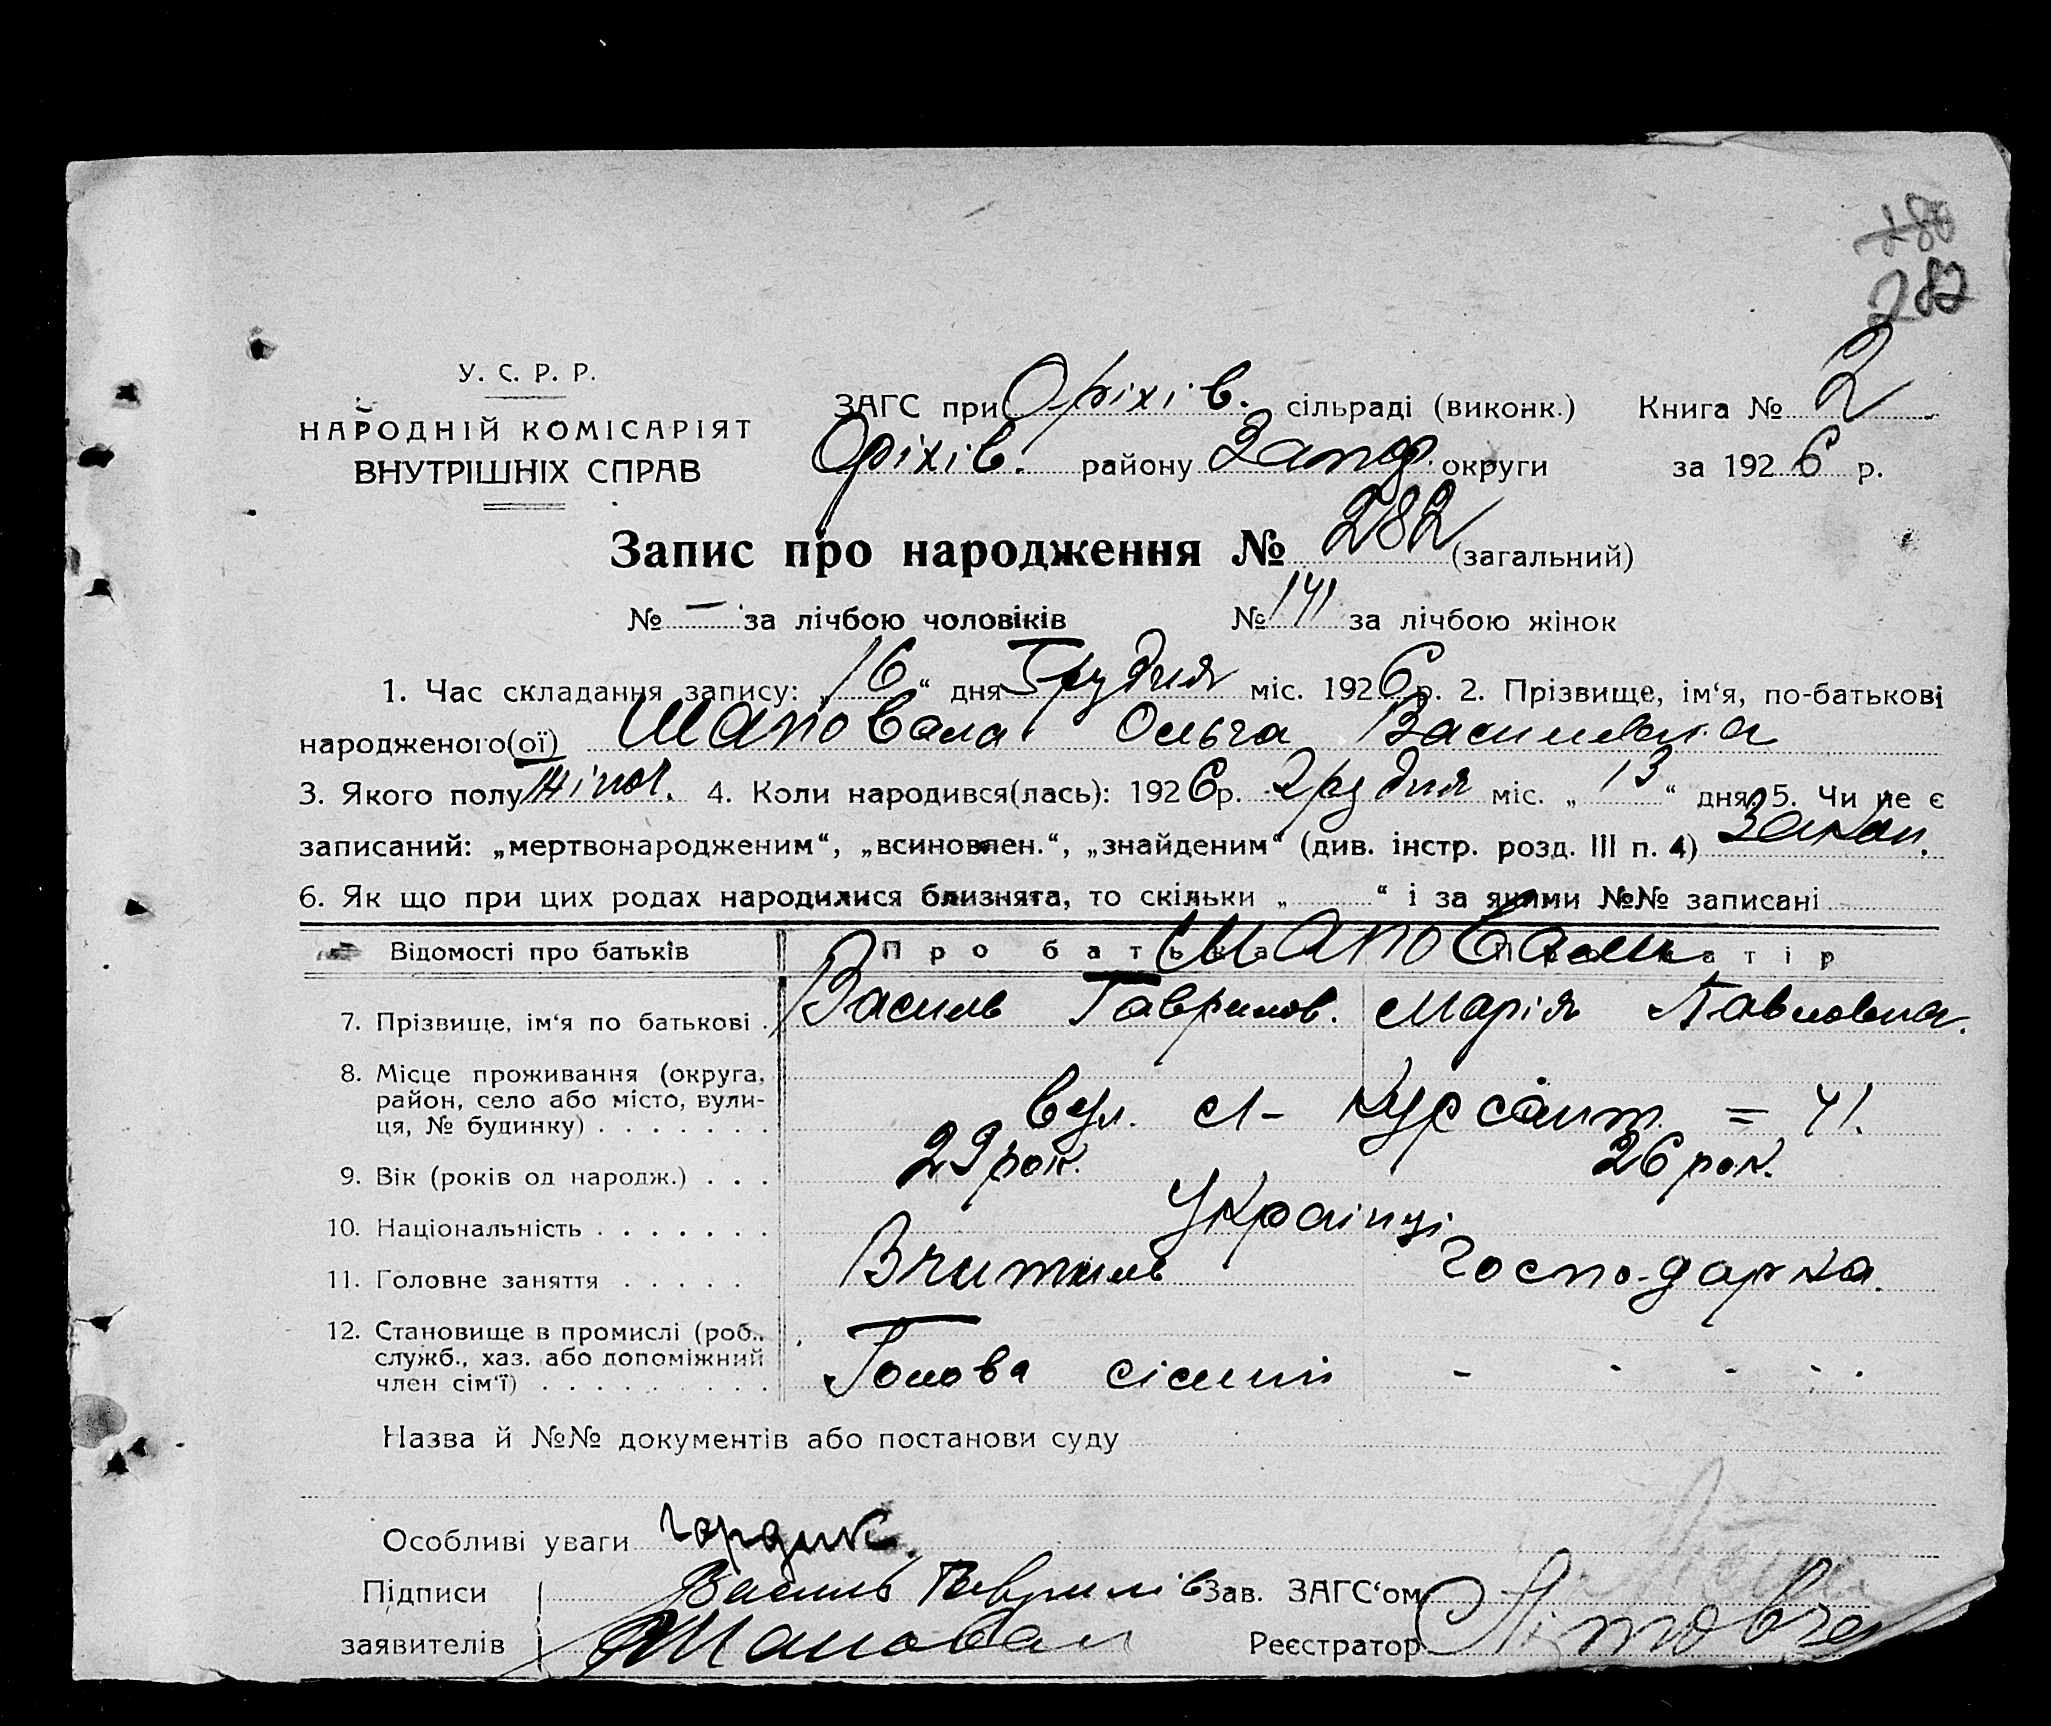 280
282
У. С. Р. Р.
НАРОДНІЙ КОМІСАРІЯТ
ВНУТРІШНІХ СПРАВ
ЗАГС при Оріхів. сільраді (виконк.) Книга № 2
Оріхів. району Запор. округи за 1926 р.
Запис про народження № 282 (загальний)
№ — за лічбою чоловіків № 141 за лічбою жінок
1. Час складання запису: „16“ дня Грудня міс. 1926 р. 2. Прізвище, ім‘я, по-батькові
народженого(ої) Шаповала Ольга Василівна
3. Якого полу Жіноч. 4. Коли народився(лась): 1926 р. Грудня міс. „13“ дня. 5. Чи не є
записаний: „мертвонародженим“, „всиновлен.“, „знайденим“ (див. інстр. розд. III п. 4) Закон.
6. Як що при цих родах народилися близнята, то скільки „ “ і за якими №№ записані
Відомості про батьків Про батька Про матір
Шаповали
7. Прізвище, ім‘я по батькові . Василь Гаврилов. Марія Павловна.
8. Місце проживання (округа,
район, село або місто, вули-
ця, № будинку) . . . . . . . вул. Курсант = 41.
9. Вік (років од народж.) . . . 29 рок. 26 рок.
10. Національність . . . . . . . Українці
11. Головне заняття . . . . . Вчитиль Господарка.
12. Становище в промислі (роб.,
служб., хаз. або допоміжний
член сім‘ї) . . . . . . . . . Голова сісмії - - - - -
Назва й №№ документів або постанови суду
Особливі уваги
Підписи Василь Гаврилів Зав. ЗАГС‘ом
заявителів Шаповал Реєстратор